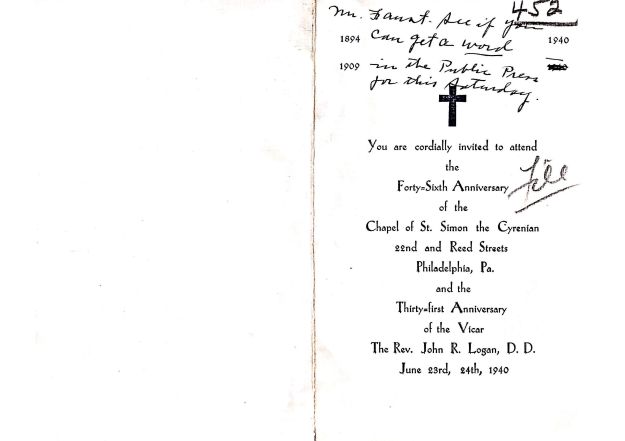 452
Mr. Faust. See if you
1894 can get a word 1940
1909 in the Public Press
for this Saturday.
You are cordially invited to attend
the
Forty=Sixth Anniversary
File
of the
Chapel of St. Simon the Cyrenian
22nd and Reed Streets
Philadelphia, Pa.
and the
Thirty=first Anniversary
of the Vicar
The Rev. John R. Logan, D. D.
June 23rd, 24th, 1940